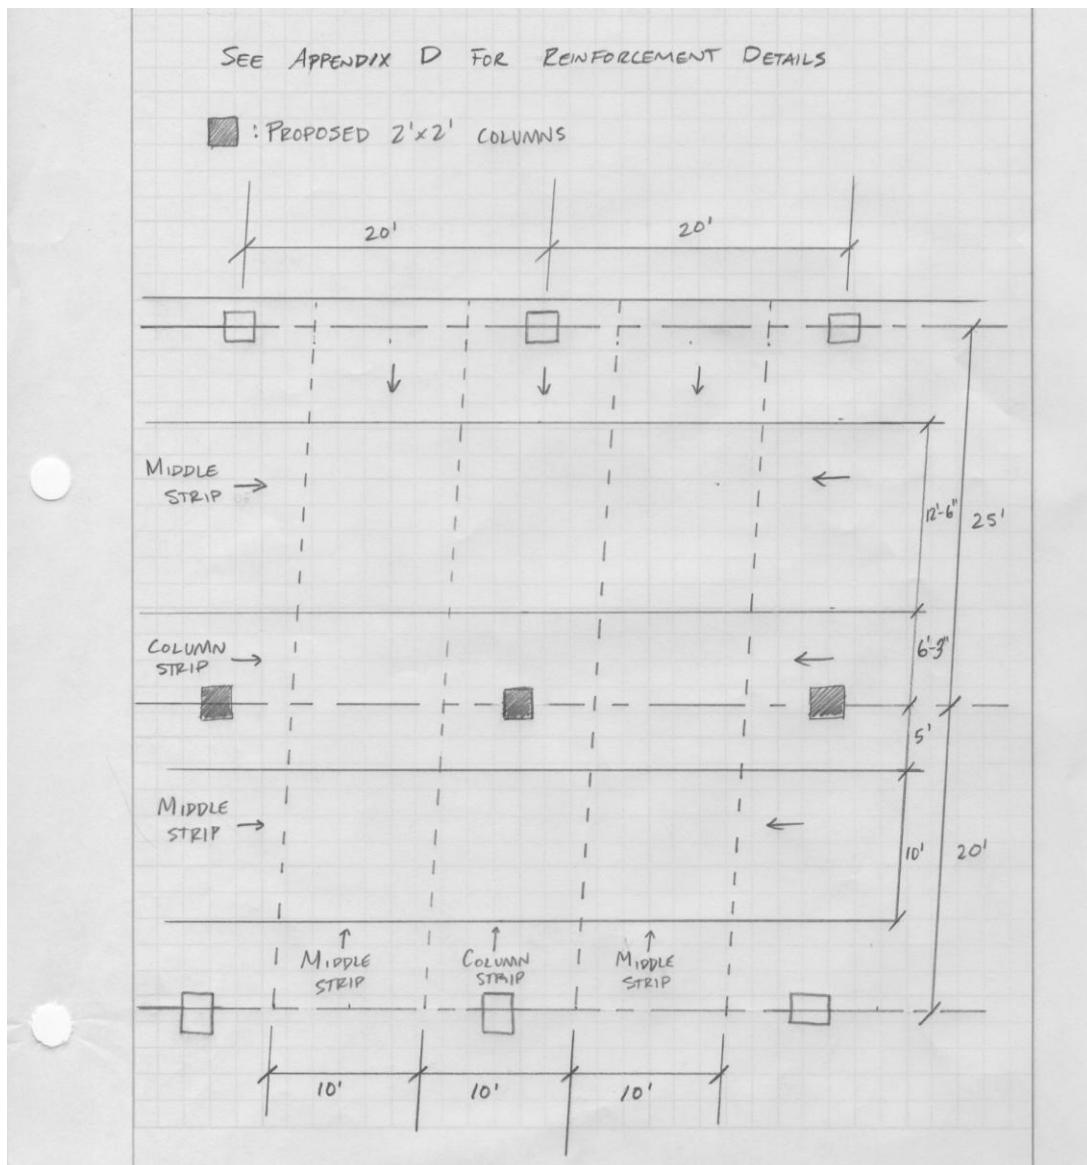 SEE APPENDIX D FOR REINFORCEMENT DETAILS
: PROPOSED 2'x2' COLUMNS
20'
20'
MIDDLE
STRIP
12'-6"
25'
COLUMN
STRIP
6'-3"
5'
MIDDLE
STRIP
10'
20'
MIDDLE
STRIP
COLUMN
STRIP
MIDDLE
STRIP
10'
10'
10'